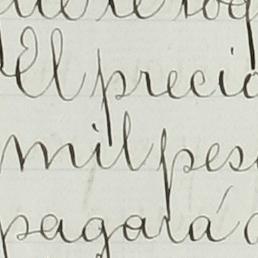 El precio
mil pes
pagará